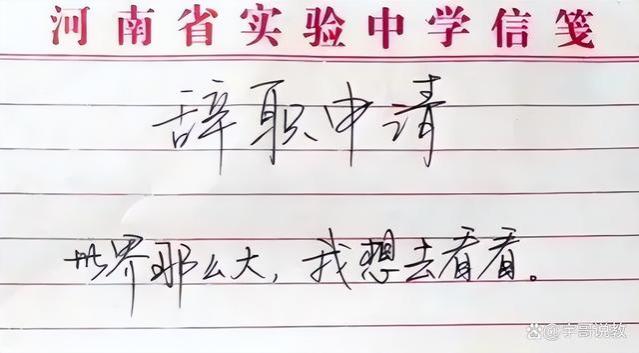 河南省实验中学信笺
辞职申请
世界那么大，我想去看看。
宇哥说教